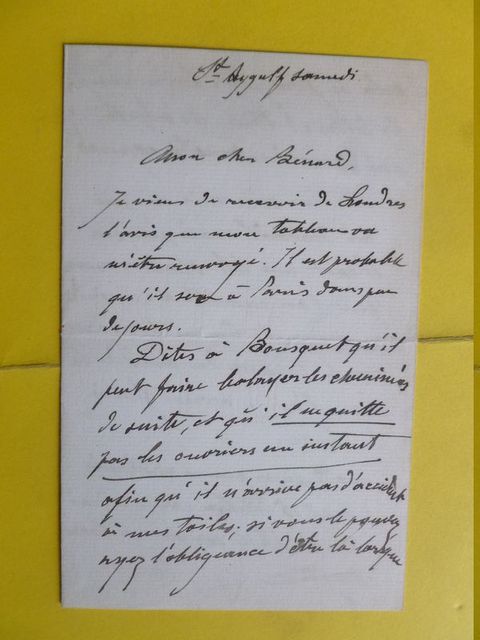 St. Aygulf samedi
Mon cher Bénard,
Je viens de recevoir de Londres
l'avis que mon tableau va
m'être renvoyé. Il est probable
qu'il sera à Paris dans peu
de jours.
Dites à Bousquet qu'il
peut faire balayer les cheminées
de suite, et qu'il ne quitte
pas les ouvriers un instant
afin qu'il n'arrive pas d'accident
à mes toiles; si vous le pouvez
ayez l'obligeance d'être là lorsque